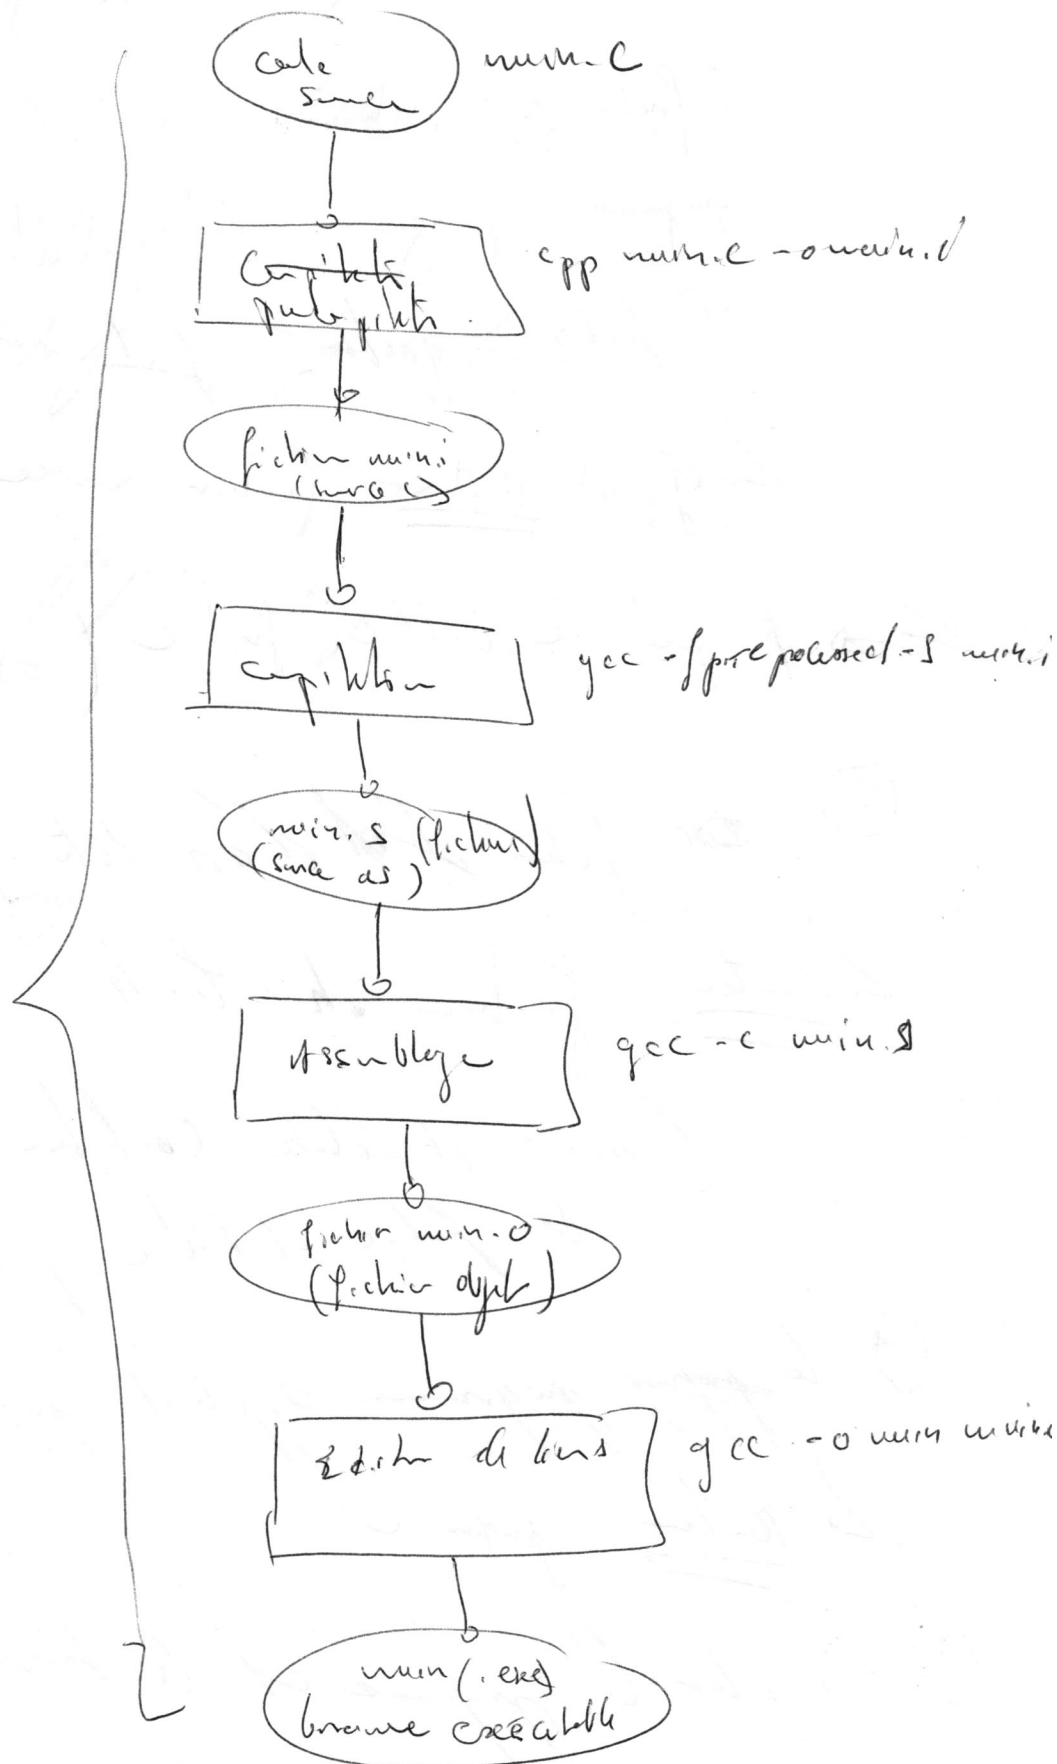 code
source
main.c
cpp main.c -o main.i
Compilati
precompilati
fichier main.i
(source C)
Compilation
gcc -fpreprocessed -S main.i
main.s (fichier)
(source as)
Assemblage
gcc -c main.s
fichier main.o
(fichier objet)
Edition de liens
gcc -o main main.o
main (.exe)
binaire exécutable